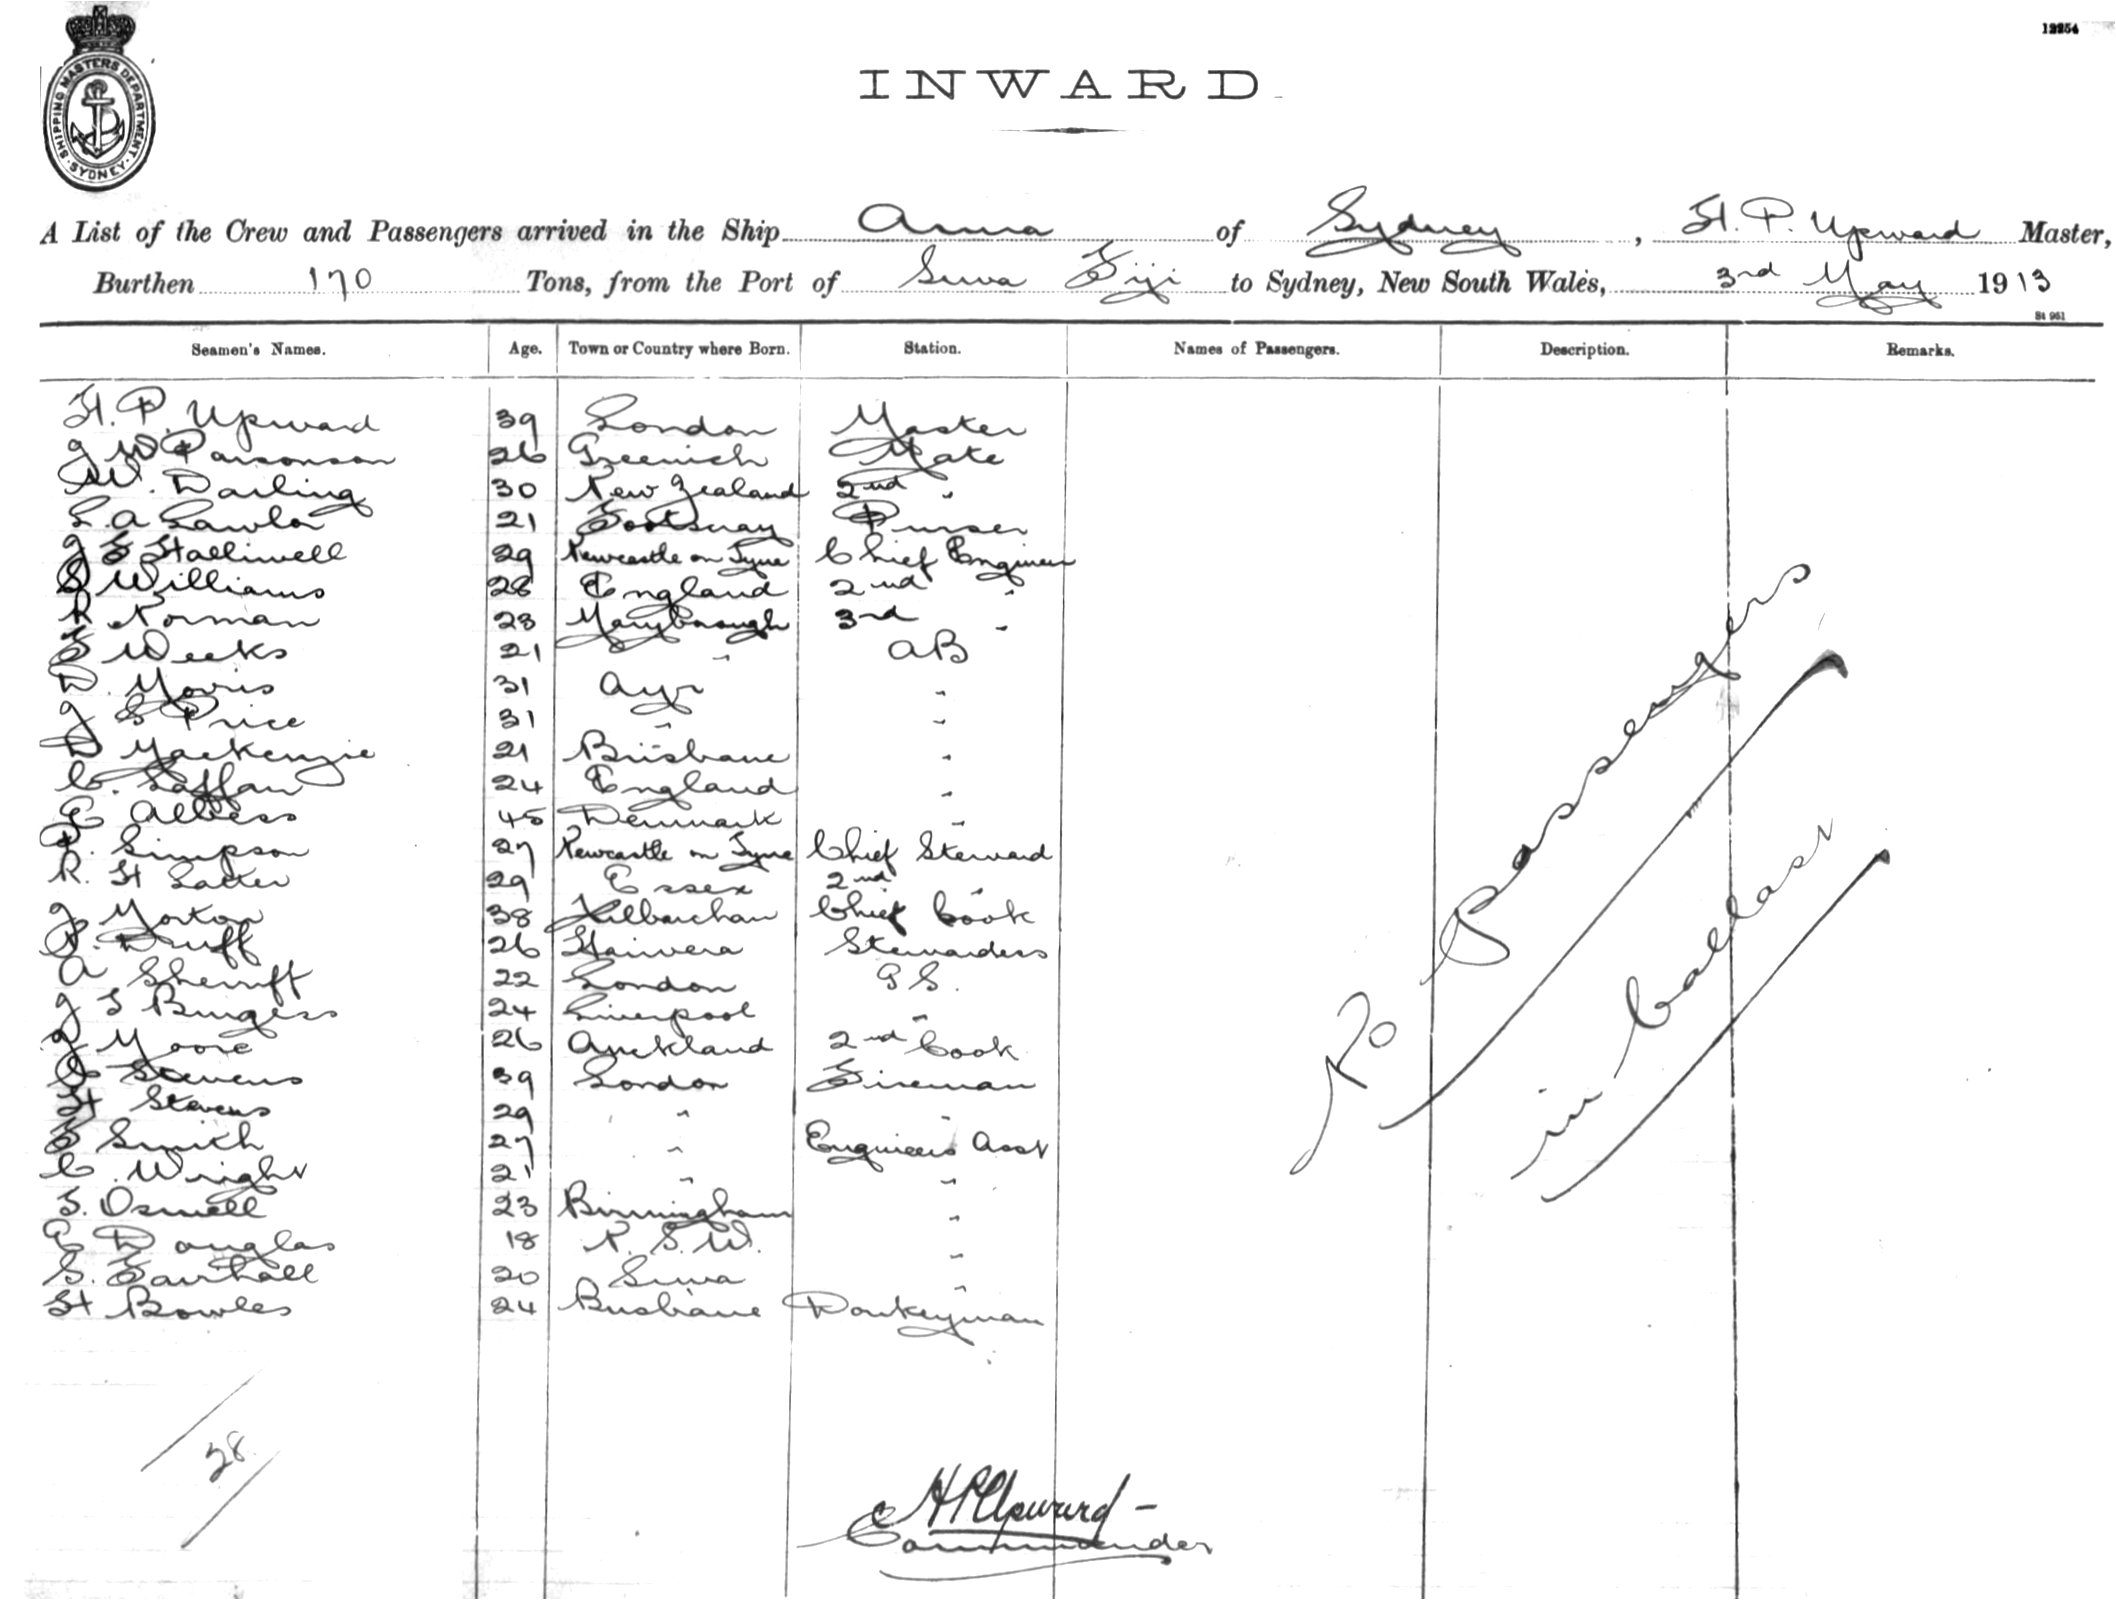 12254
SHIPPING MASTERS DEPARTMENT. SYDNEY
INWARD
A List of the Crew and Passengers arrived in the Ship Anna of Sydney, H. P. Upward Master,
Burthen 170 Tons, from the Port of Suva Fiji to Sydney, New South Wales, 3rd May 1913
St 961
Seamen's Names. Age. Town or Country where Born. Station. Names of Passengers. Description. Remarks.
H. P. Upward 39 London Master
J W Parsonson 26 Greenich Mate
W. Darling 30 New Zealand 2nd "
L. A Lawlor 21 Footscray Purser
J F Halliwell 29 Newcastle on Tyne Chief Engineer
S Williams 28 England 2nd "
R Norman 23 Maryborough 3rd "
F Weeks 21 " AB
D. Morris 31 Ayr "
J S Price 31 " "
D Mackenzie 21 Brisbane "
C. Laffan 24 England "
E Albess 45 Denmark "
R. Simpson 27 Newcastle on Tyne Chief Steward
R. H Latter 29 Essex 2nd "
J Morton 38 Kilbarchan Chief Cook
P. Druff 26 Stewardess
A Sherriff 22 London G S.
J S Burgess 24 Liverpool "
J Moore 26 Auckland 2nd Cook
C Stevens 39 London Fireman
H Stevens 29 " "
F Smith 27 " Engineers Asst
C. Wright 21 " "
F. Osmell 23 Birmingham "
E Douglas 18 N. S. W. "
G. Fairhall 20 Suva "
H Bowles 24 Brisbane Donkeyman
No Passengers
in ballast
28
H P Upward -
Commander